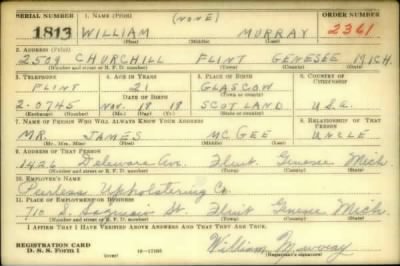 SERIAL NUMBER 1. NAME (Print) (NONE) ORDER NUMBER
1813 WILLIAM MURRAY 2361
(First) (Middle) (Last)
2. ADDRESS (Print)
2509 CHURCHILL FLINT GENESEE MICH.
(Number and street or R. F. D. number) (Town) (County) (State)
3. TELEPHONE 4. AGE IN YEARS 5. PLACE OF BIRTH 6. COUNTRY OF CITIZENSHIP
FLINT 21 GLASCOW
DATE OF BIRTH
2-0745 Nov. 18 18 SCOTLAND U.S.A.
(Exchange) (Number) (Mo.) (Day) (Yr.) (State or country)
7. NAME OF PERSON WHO WILL ALWAYS KNOW YOUR ADDRESS 8. RELATIONSHIP OF THAT PERSON
MR. JAMES MC.GEE UNCLE
(Mr., Mrs., Miss) (First) (Middle) (Last)
9. ADDRESS OF THAT PERSON
1426 Delaware Ave. Flint Genesee Mich
(Number and street or R. F. D. number) (Town) (County) (State)
10. EMPLOYER'S NAME
Peerless Upholstering Co.
11. PLACE OF EMPLOYMENT OR BUSINESS
710 S. Saginaw St. Flint Genesee Mich.
(Number and street or R. F. D. number) (Town) (County) (State)
I AFFIRM THAT I HAVE VERIFIED ABOVE ANSWERS AND THAT THEY ARE TRUE.
REGISTRATION CARD
D. S. S. Form 1 (over) 16-17105 William Murray
(Registrant's signature)